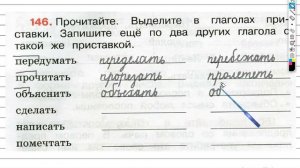 146. Прочитайте. Выделите в глаголах при-
ставки. Запишите ещё по два других глагола с
такой же приставкой.
передумать переделать перебежать
прочитать прорезать пролететь
объяснить объехать об
сделать
написать
помечтать